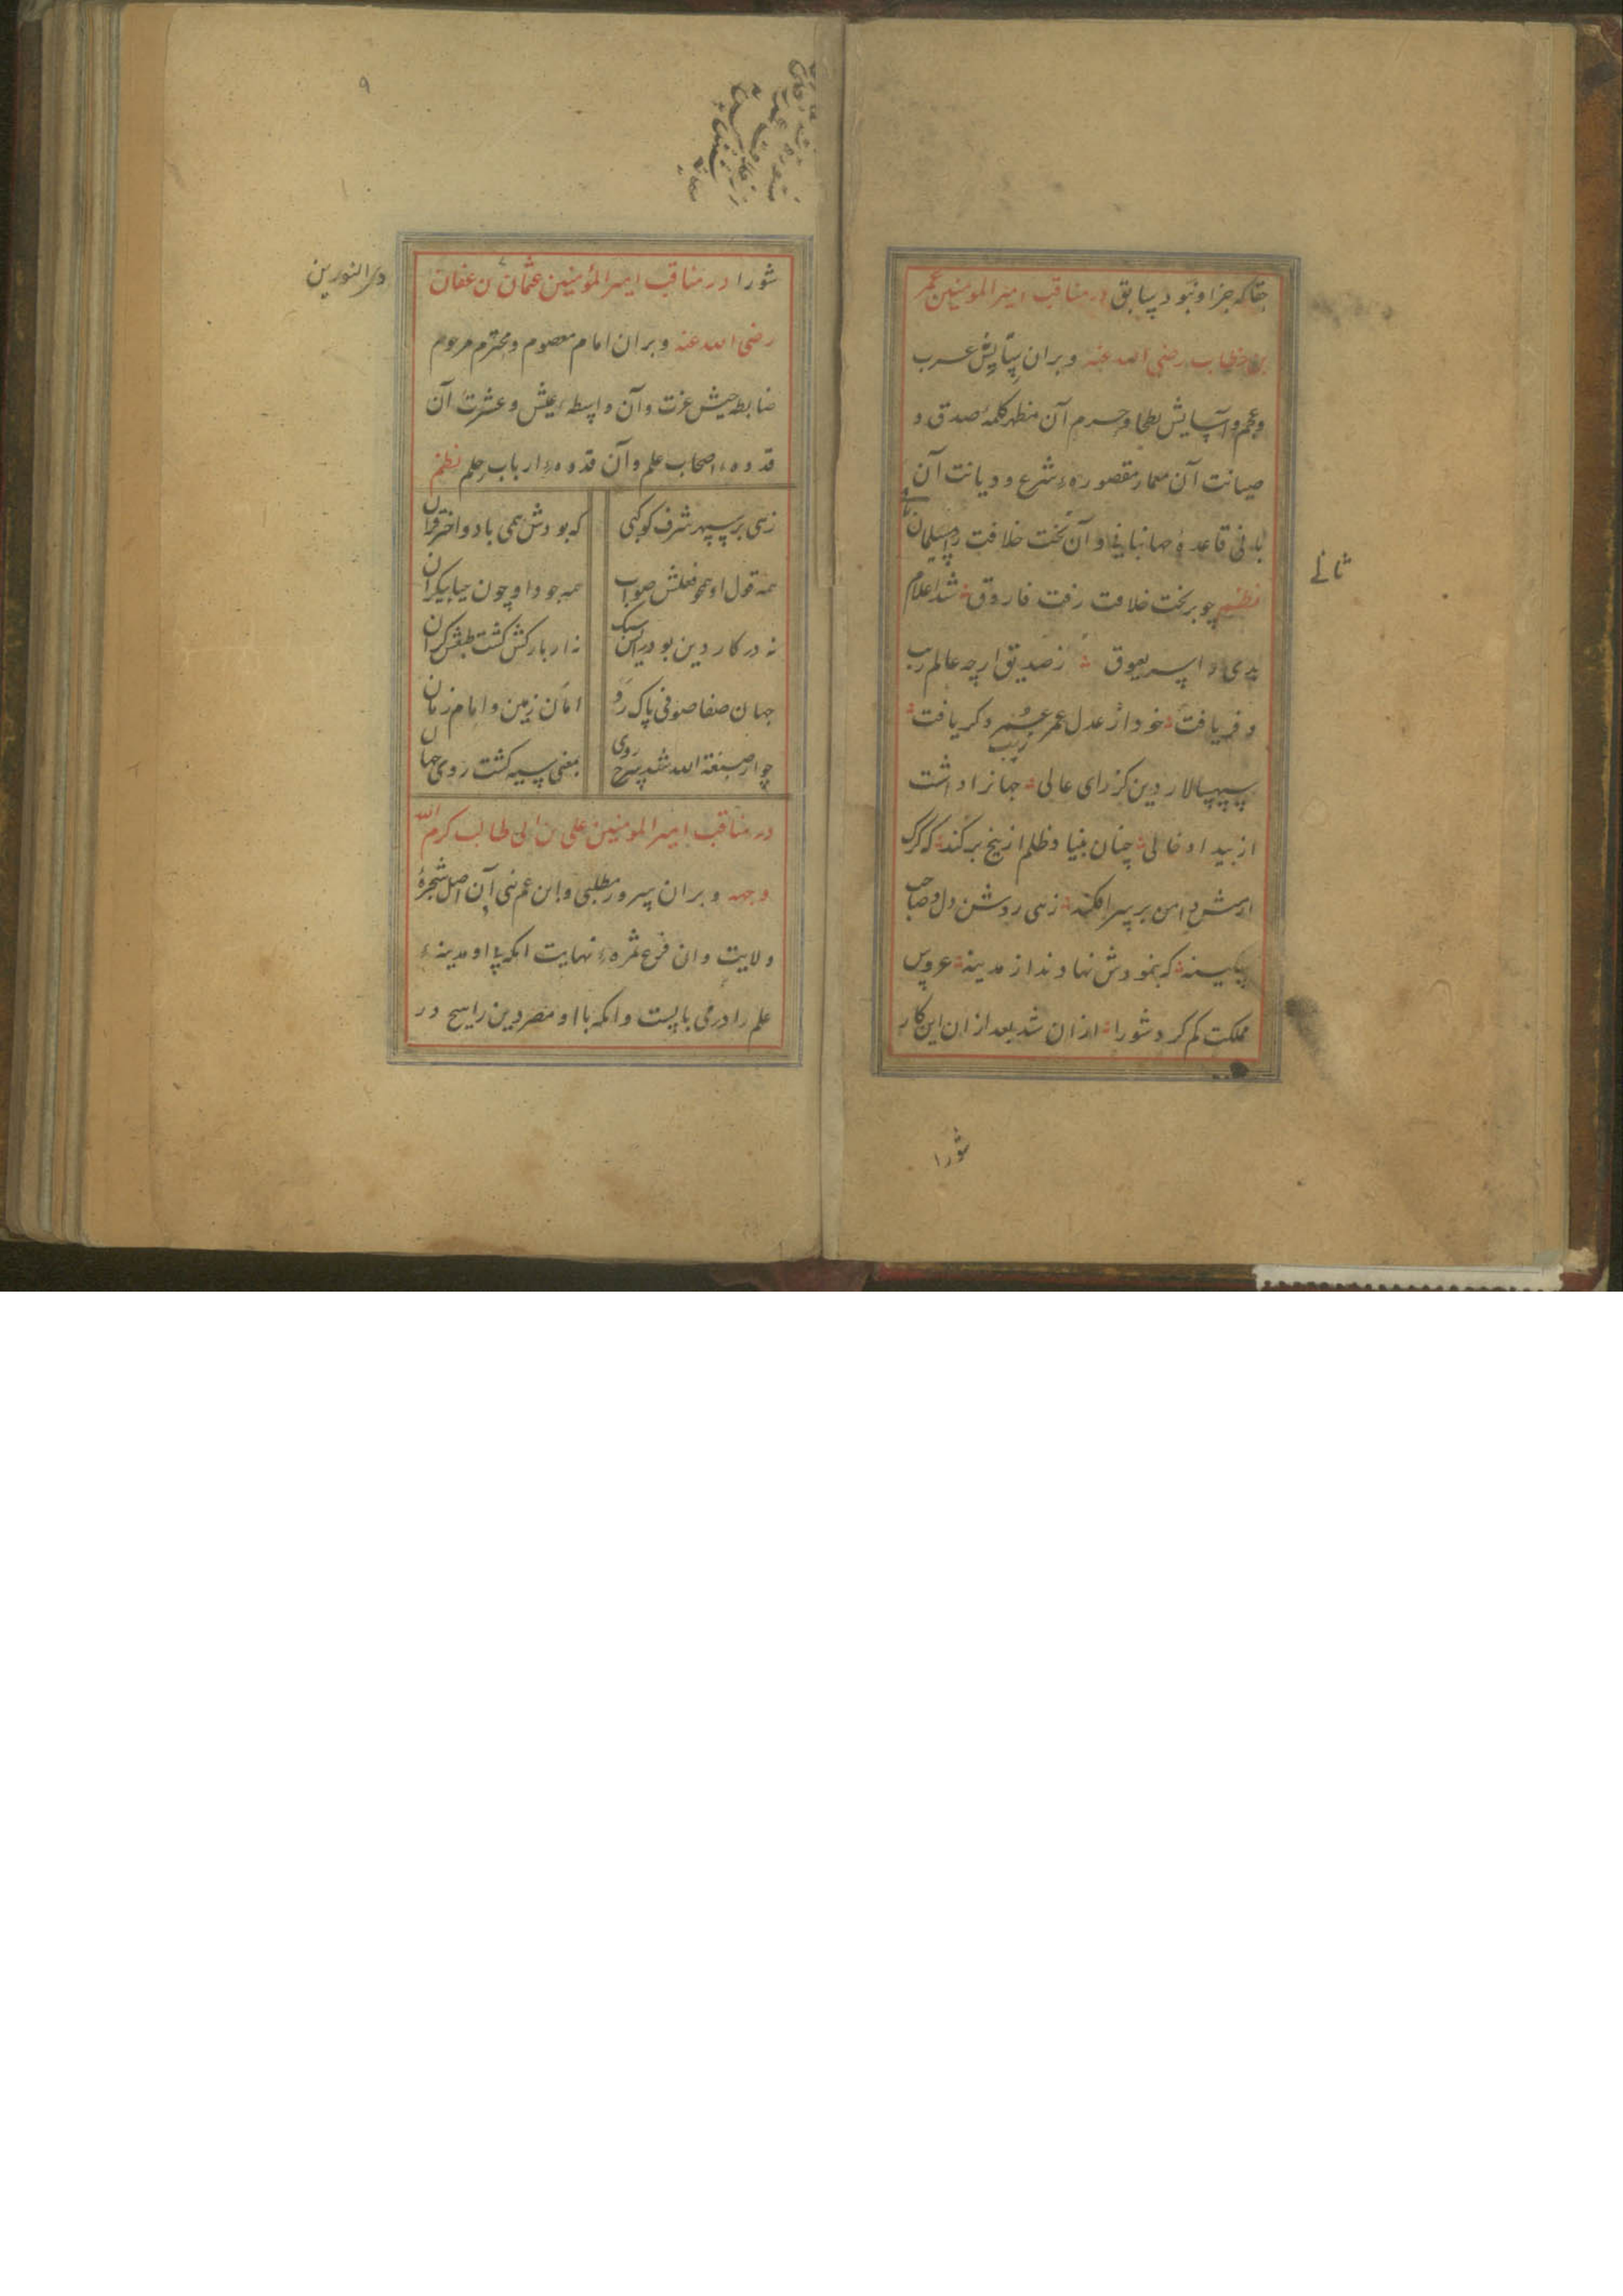 حقا که جز او نبود سابق در مناقب امیر المومنین عمر
بن خطاب رضی الله عنه و بران ستایش عرب
و عجم و آسایش بطحا و حرم آن مظهر کلمهٔ صدق و
صیانت آن معمار مقصورهٔ شرع و دیانت آن
بانی قاعدهٔ جهانبانی و آن تخت خلافت را سلیمان
ثانی
نظم چو بر تخت خلافت رفت فاروق شد اعلام
هدی و اسر بعیوق ز صدیق ار چه عالم زیب
و فر یافت خود از عدل عمر عمر دگر یافت
زیب
سپهسالار دین کز رای عالی جهانرا داشت
از بیداد خالی چنان بنیاد ظلم از بیخ برکند که گرگ
ارمش دامن بر سر افکند زهی روشن دل و صاحب
سکینه که بنمودش نهاوند از مدینه عروس
مملکت کم کرد شورا ازان شد بعد ازان این کار
شورا
۹
شورا در مناقب امیر المؤمنین عثمان بن عفان
ذی النورین
رضی الله عنه و بران امام معصوم و محترم مرحوم
ضابط جیش عزت و آن واسطهٔ عیش و عشرت آن
قدوهٔ اصحاب علم و آن قدوهٔ ارباب حلم نظم
زهی بر سپهر شرف کوکبی که بودش همی باد و اختر قران
همه قول او همچو فعلش صواب همه جود او چون حیا بیکران
نه در کار دین بود دراسن سبک نه از بارکش کشت طبعش کران
جهان صفا صوفی پاک رو امان زمین و امام زمان
چو از صبغة الله شد سرخ روی بمعنی سیه کشت روی جهان
در مناقب امیر المومنین علی بن ابی طالب کرم الله
وجهه و بران سرور مطلبی و ابن عم نبی آن اصل شجرهٔ
ولایت و ان فرع ثمرهٔ نهایت انکه با او مدینهٔ
علم را در می بایست و انکه با او مصر دین را هیچ در